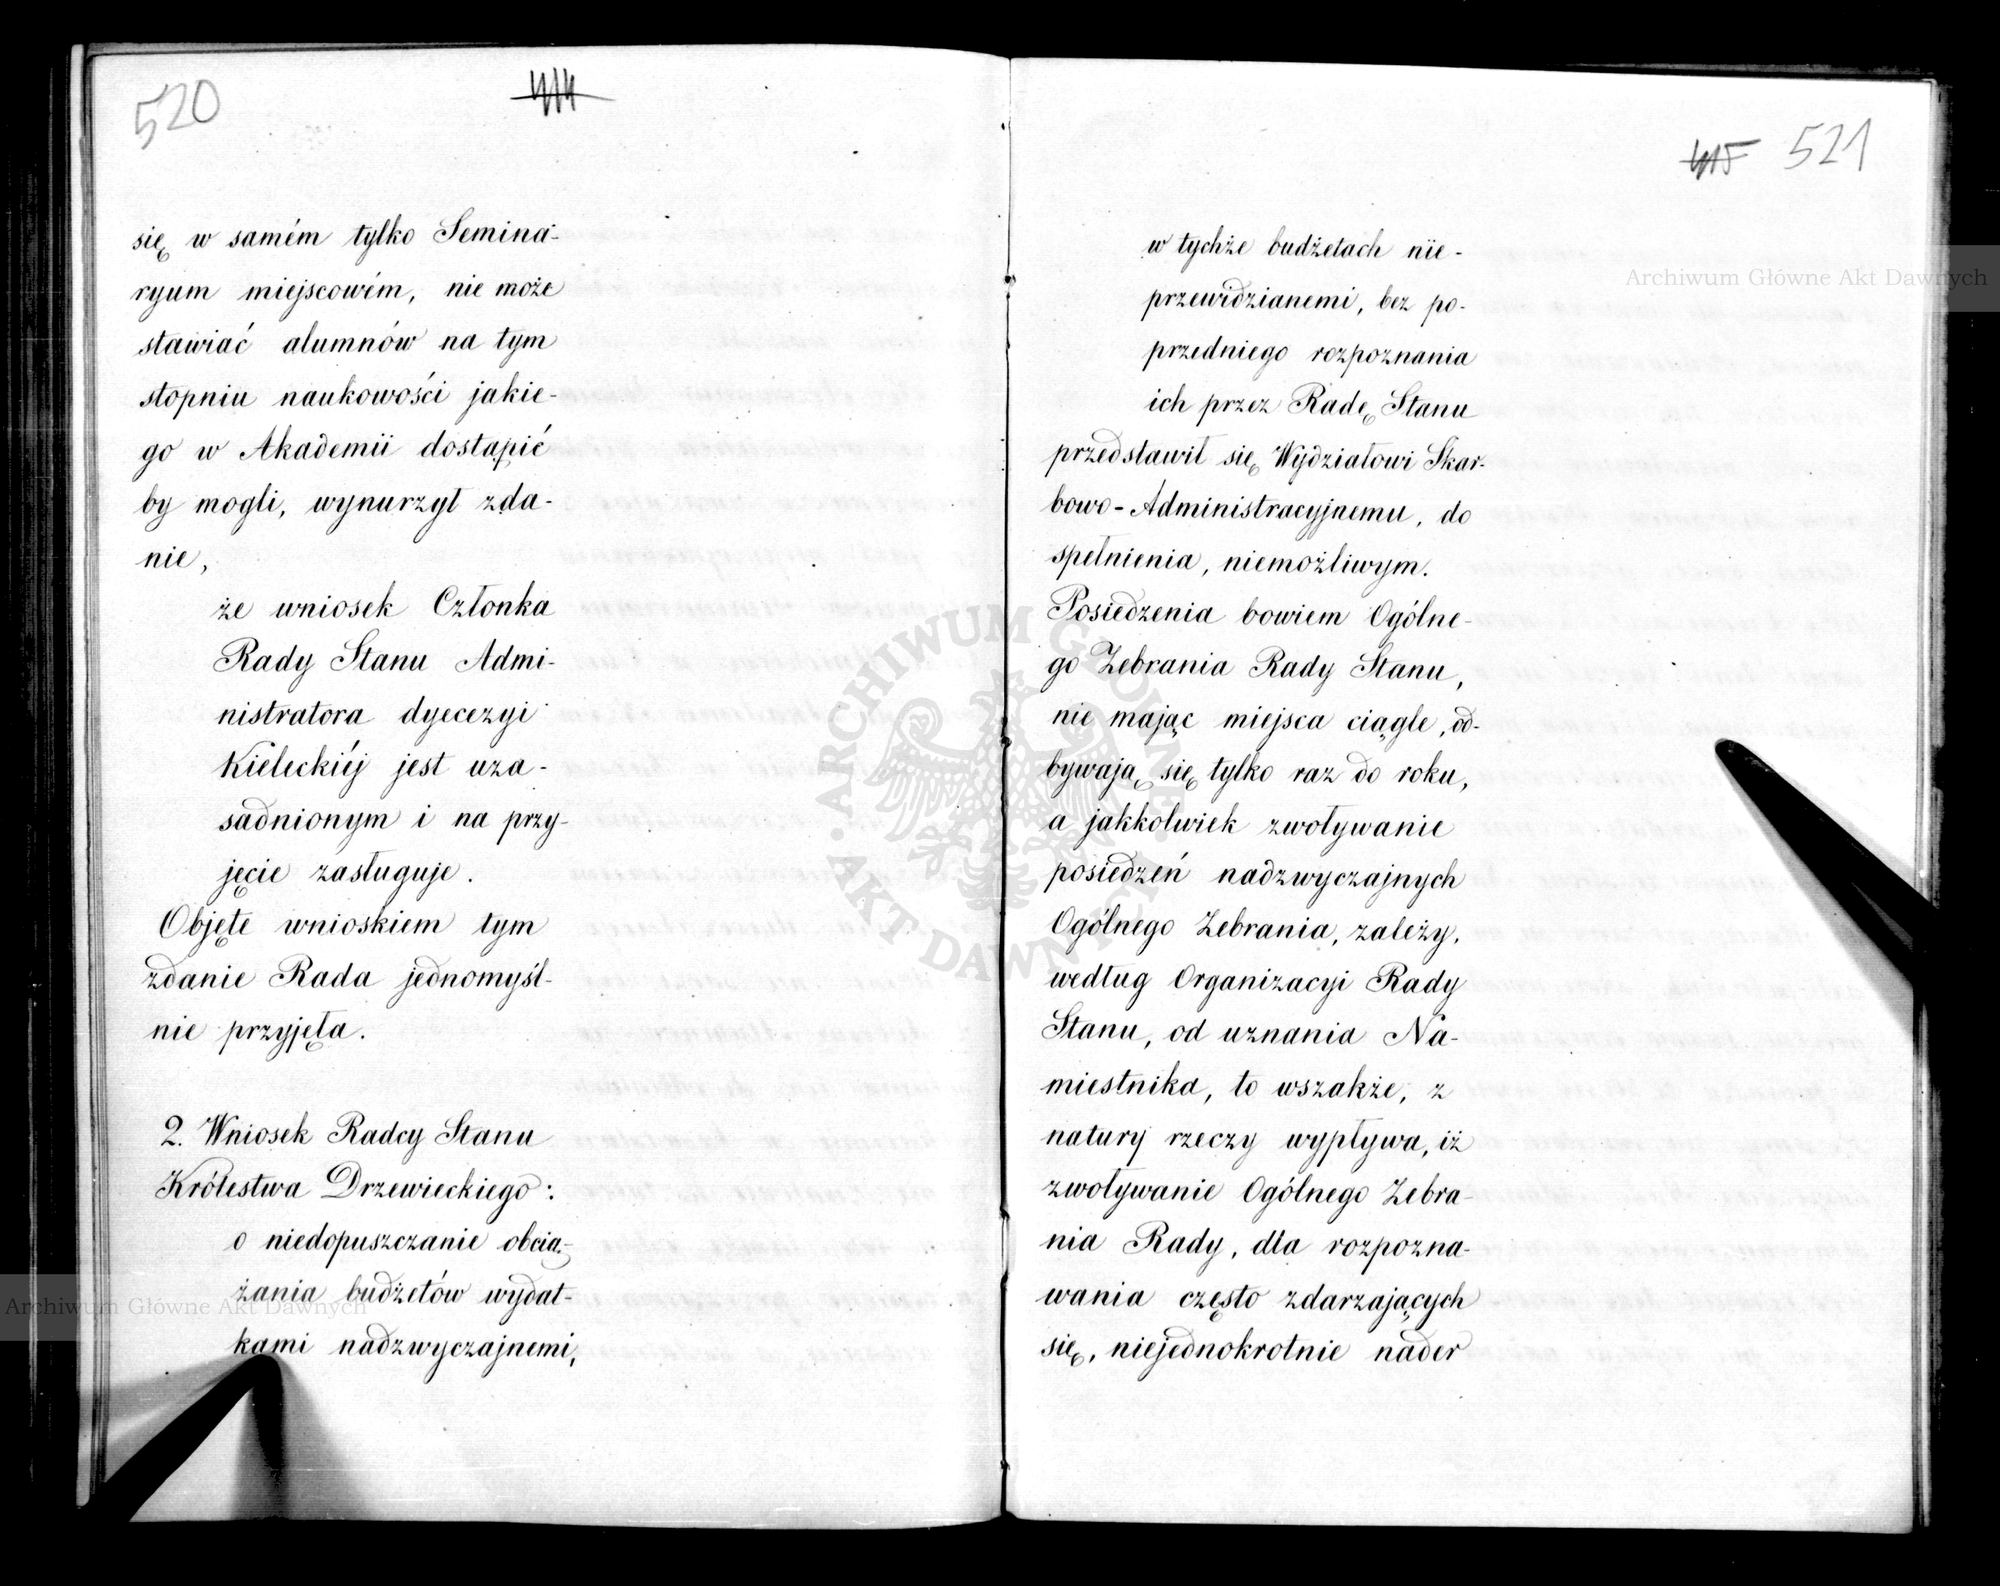 520
414
się w samém tylko Semina-
ryum miejscowém, nie może
stawiać alumnów na tym
stopniu naukowości jakie-
go w Akademii dostąpić
by mogli, wynurzył zda-
nie,
że wniosek Członka
Rady Stanu Admi-
nistratora dyecezyi
Kieleckiéj jest uza-
sadnionym i na przy-
jęcie zasługuje.
Objęte wnioskiem tym
zdanie Rada jednomyśl-
nie przyjęła.
2. Wniosek Radcy Stanu
Królestwa Drzewieckiego:
o niedopuszczanie obcią-
żania budżetów wydat-
kami nadzwyczajnemi,
Archiwum Główne Akt Dawnych
415 521
w tychże budżetach nie-
przewidzianemi, bez po-
przedniego rozpoznania
ich przez Radę Stanu
przedstawił się Wydziałowi Skar-
bowo-Administracyjnemu, do
spełnienia, niemożliwym.
Posiedzenia bowiem Ogólne-
go Zebrania Rady Stanu,
nie mając miejsca ciągle, od-
bywają się tylko raz do roku,
a jakkolwiek zwoływanie
posiedzeń nadzwyczajnych
Ogólnego Zebrania, zależy,
według Organizacyi Rady
Stanu, od uznania Na-
miestnika, to wszakże, z
natury rzeczy wypływa, iż
zwoływanie Ogólnego Zebra-
nia Rady, dla rozpozna-
wania często zdarzających
się, niejednokrotnie nader
Archiwum Główne Akt Dawnych
ARCHIWUM GŁÓWNE AKT DAWNYCH